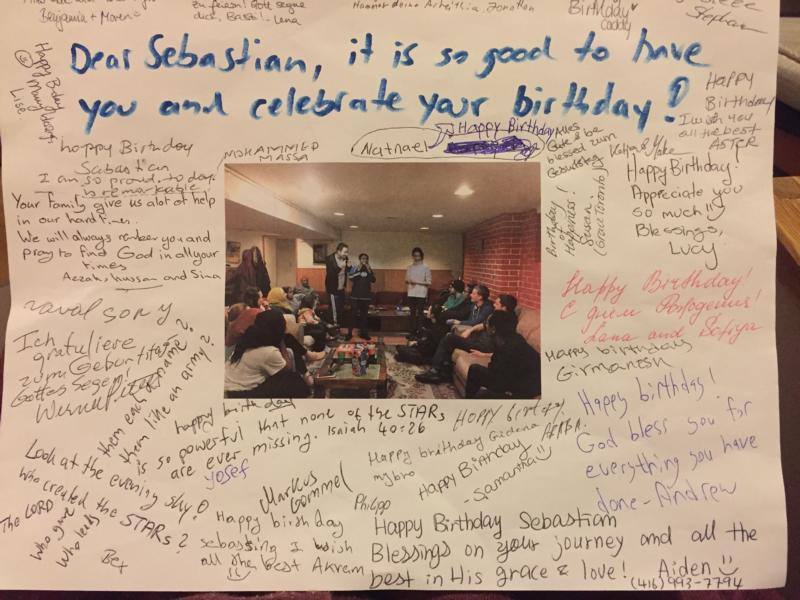 Benjamin + Maren
zu feiern! Gott segne
dich, Basti! - Lena
Birthday
Caddy
Stephan
Dear Sebastian, it is so good to have
you and celebrate your birthday!
Happy B.day
Lise
Happy
Birthday
I wish you
all the best
ASTER
happy Birthday
Sabastian
I am so proud, to day
is remarkable
Your family give us alot of help
in our hard times.
We will always rember you and
pray to find God in all your
times
Azzah, hussan and Sina
MOHAMMED
MASSA
Natnael
Happy Birthday
Alles
Gute & be
blessed zum
Geburtstag
Birthday
of
Happiness!
Susan
Happy Birthday!
Appreciate you
so much
Blessings,
Lucy
Happy Birthday!
Lana and Sofiya
Happy birthday
Girmanesh
Ich
gratuliere
zum Geburtstag
Gottes Segen!
Werner
happy birth day
Look at the evening sky?
who created the STARs?
The LORD
who gave
who leads
them each a name?
them like an army?
is so powerful that none of the STARs
are ever missing. Isaiah 40:26
Bex
Yosef
Happy birthday
Happy brithday Gidena
my bro
Happy Birthday
- Samantha
Markus
Gommel
Philipp
Happy birthday!
God bless you for
everything you have
done - Andrew
Happy birthday
I wish
all the best Akrem
Happy Birthday Sebastian
Blessings on your journey and all the
best in His grace & love! Aiden
(416) 993-7794